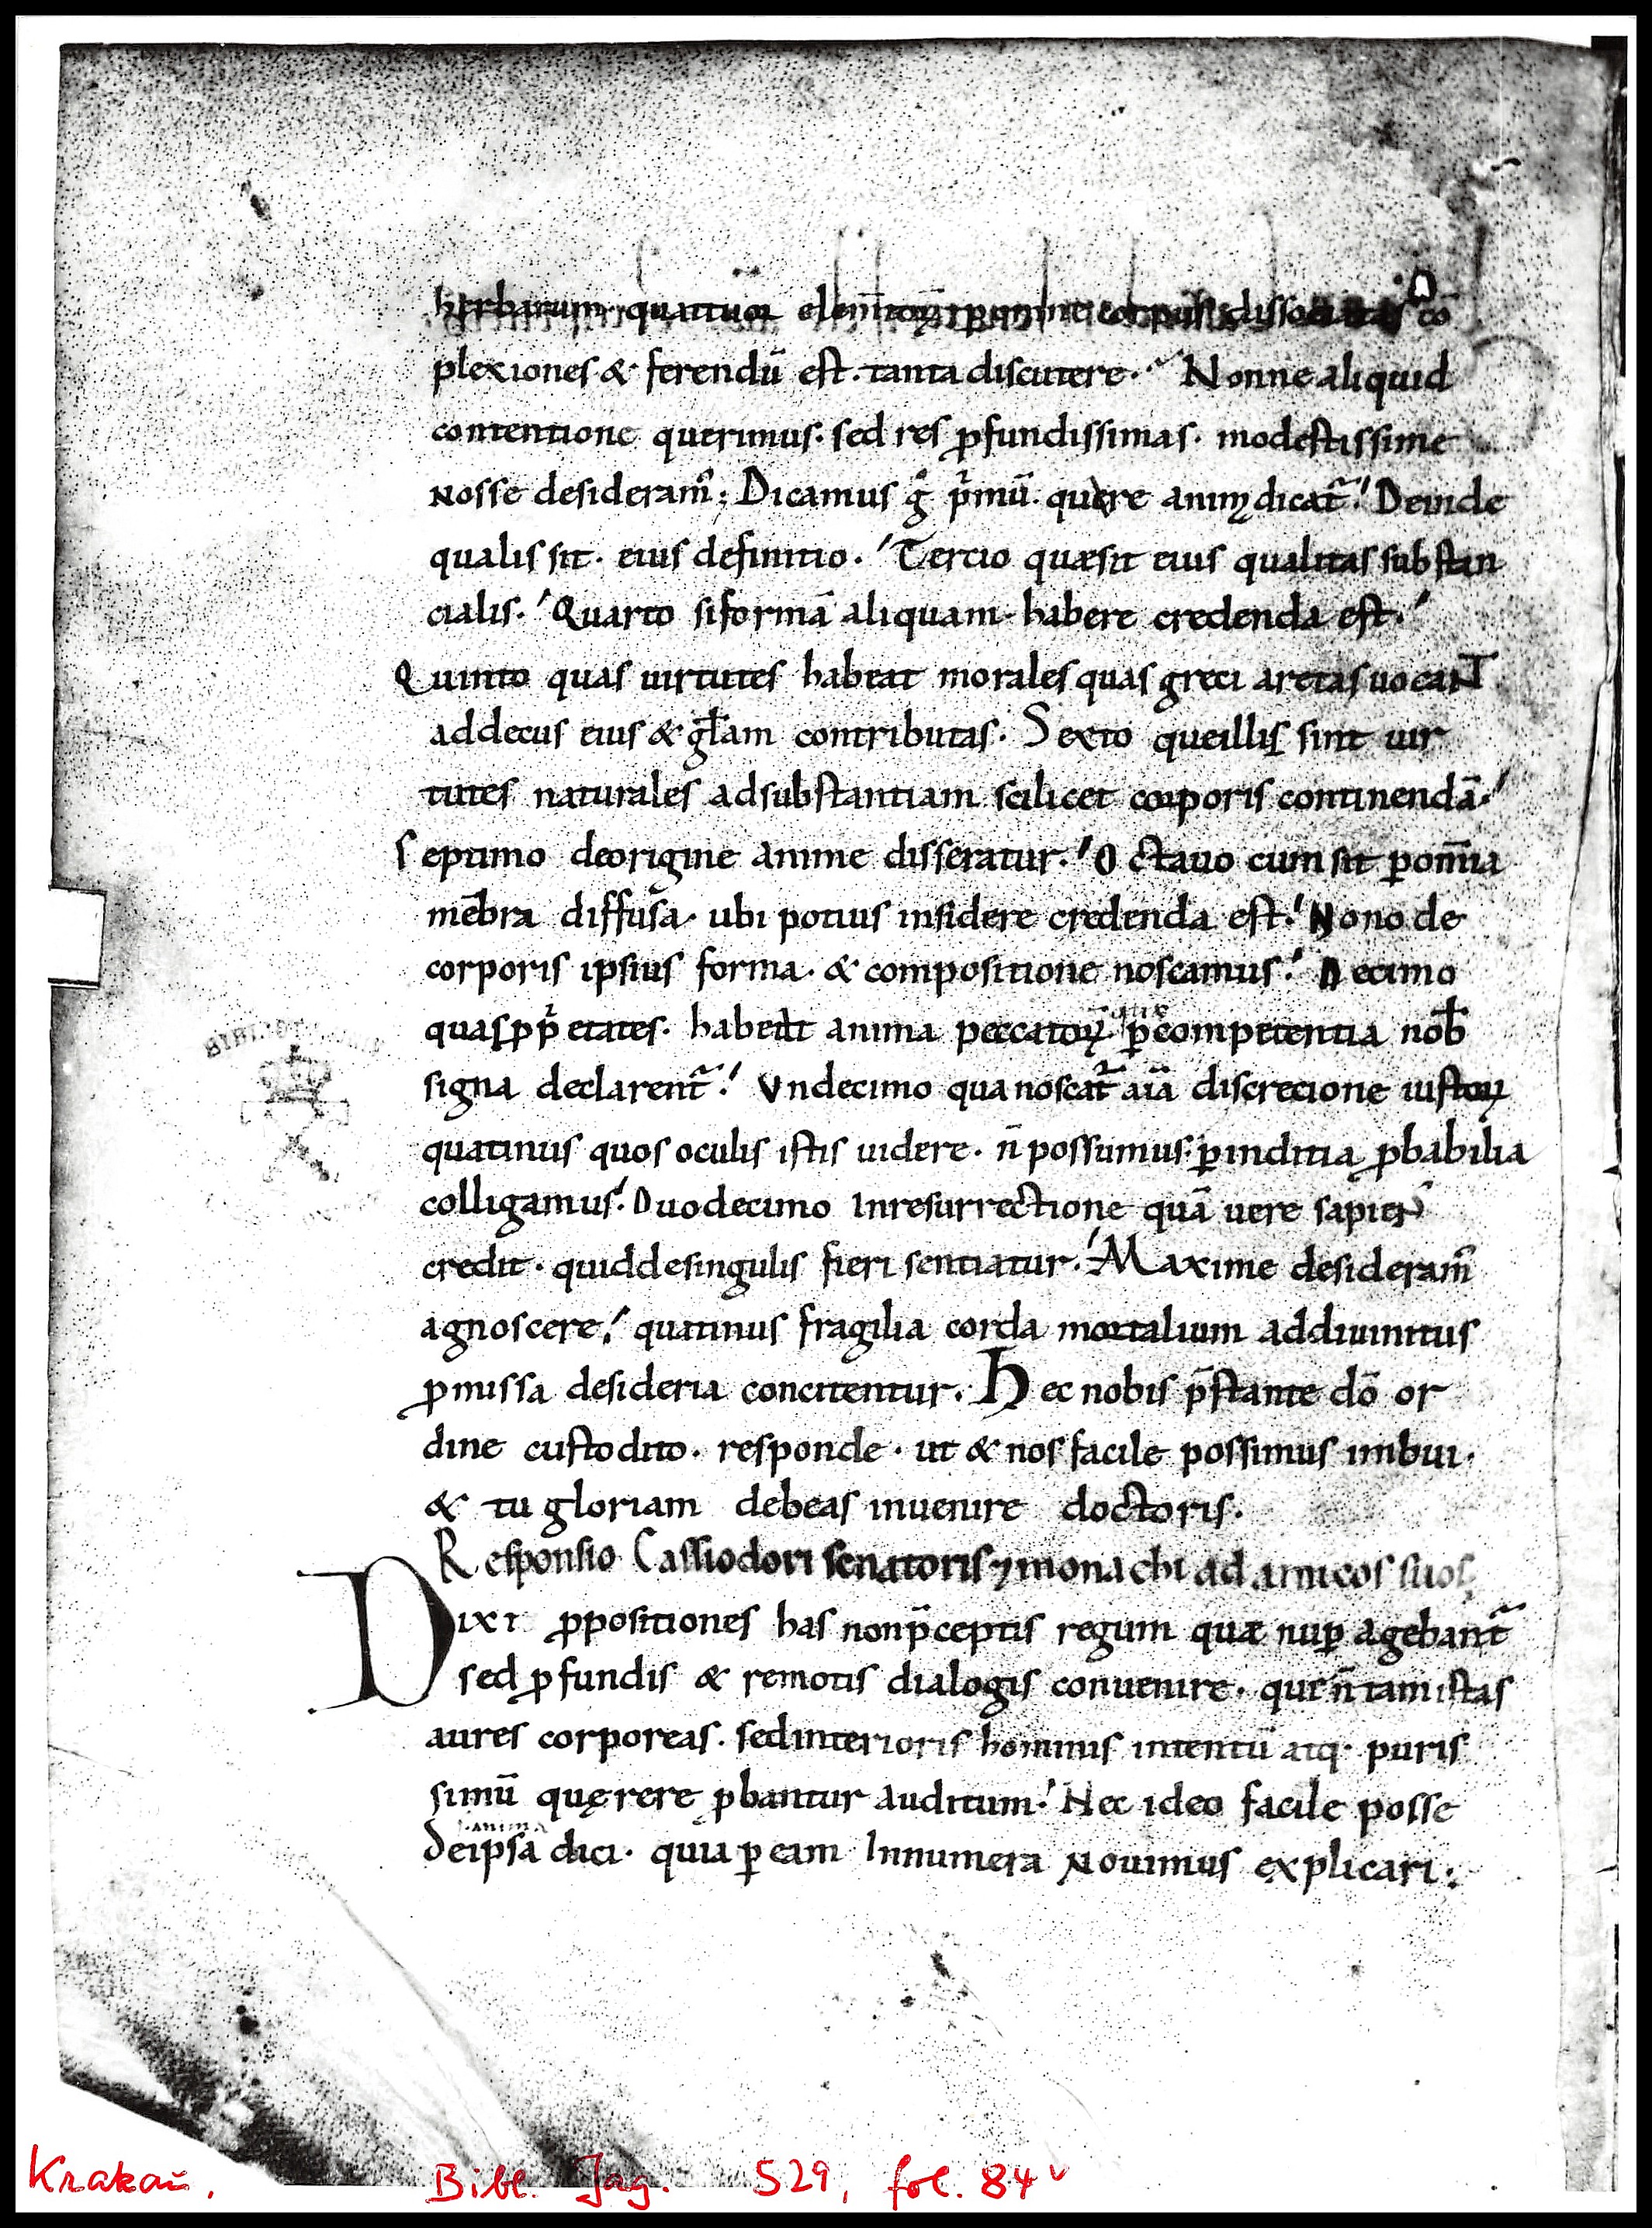 herbarum quattuor elem̄toꝝ ꝑ omne corpus dissociatas cō
plexiones & ferendū est. tanta discutere. Nonne aliquid
contentione querimus. sed res ꝓfundissimas. modestissime
nosse desideram᷒. Dicamus gͦ pͥmū. quare anim dicat᷑. Deinde
qualis sit. eius definitio. Tercio quæsit eius qualitas substan
cialis. Quarto siformā aliquam. habere credenda est.
Quinto quas uirtutes habeat morales quas greci aretas uocant
addecus eius & gl̄am contributas. Sexto queillis sint uir
tutes naturales adsubstantiam scilicet corporis continendā.
Septimo deorigine anime disseratur. Octauo cum sit ꝑom̄ia
mēbra diffusa. ubi potius insidere credenda est. Nono de
corporis ipsius forma. & compositione noscamus. Decimo
quas ꝓpͥetates. habeat anima peccatoꝝ. ꝑcompetentia nob̄
signa declarent᷑. Vndecimo qua noscat᷑ aīa discrecione iustoꝝ
quatinus quos oculis istis uidere. n̄ possumus. ꝑinditia ꝓbabilia
colligamus. Duodecimo inresurrectione quā uere sapiens
credit. quiddesingulis fieri sentiatur. Maxime desideram᷒
agnoscere. quatinus fragilia corda mortalium addiuinitus
ꝓmissa desideria concitentur. Hec nobis p̄stante dō or
dine custodito. responde. ut & nos facile possimus imbui.
& tu gloriam debeas inuenire doctoris.
Responsio Cassiodori senatoris ⁊ monachi ad amicos suos
Dixi ꝓpositiones has nonp̄ceptis regum quæ nuꝑ agebant᷑
sed ꝓfundis & remotis dialogis conuenire. que n̄ tam istas
aures corporeas. sedinterioris hominis intentū atq. puris
simū quęrere ꝓbantur auditum. Nec ideo facile posse
s. anima
deipsa dici. quia ꝑ eam innumera nouimus explicari.
Krakau, Bibl. Jag. 529, fol. 84v